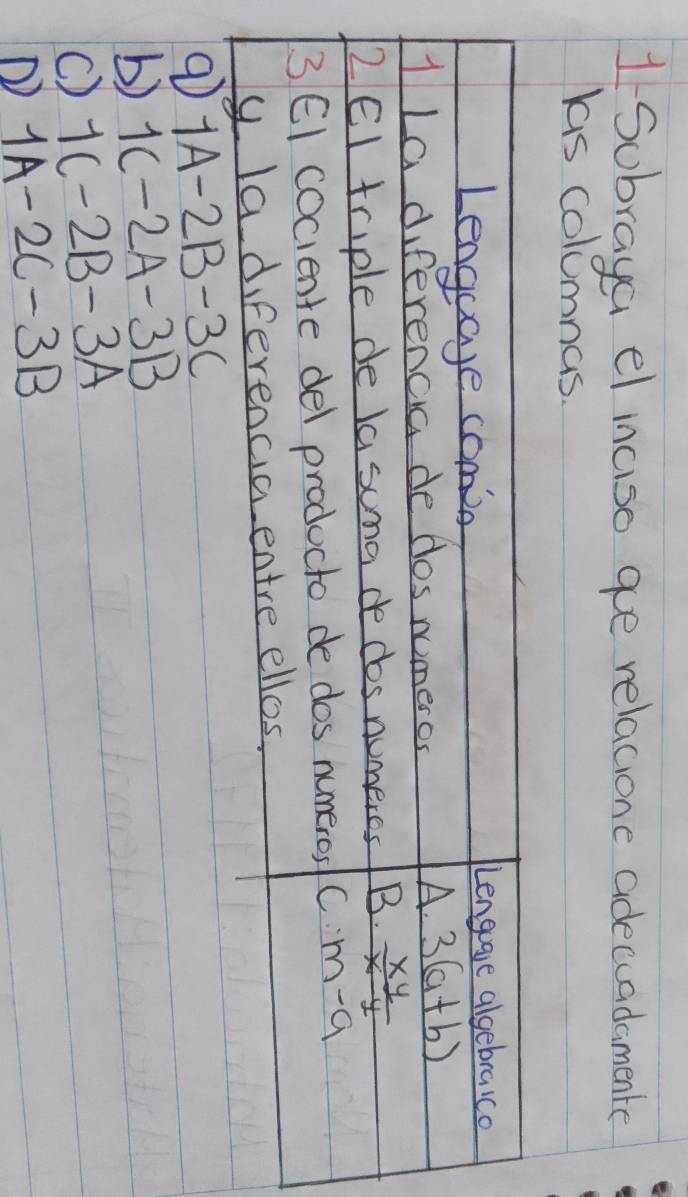 1-Subraya el inciso que relacione adecuadamente
las columnas.
Lenguaje común
Lenguaje algebraico
1 La diferencia de dos numeros
A. 3(a+b)
2 El triple de la suma de dos numeros
B. xy/x-y
3 El cociente del producto de dos numeros
y la diferencia entre ellos.
C. m-a
a) 1A-2B-3C
b) 1C-2A-3B
c) 1C-2B-3A
D) 1A-2C-3B